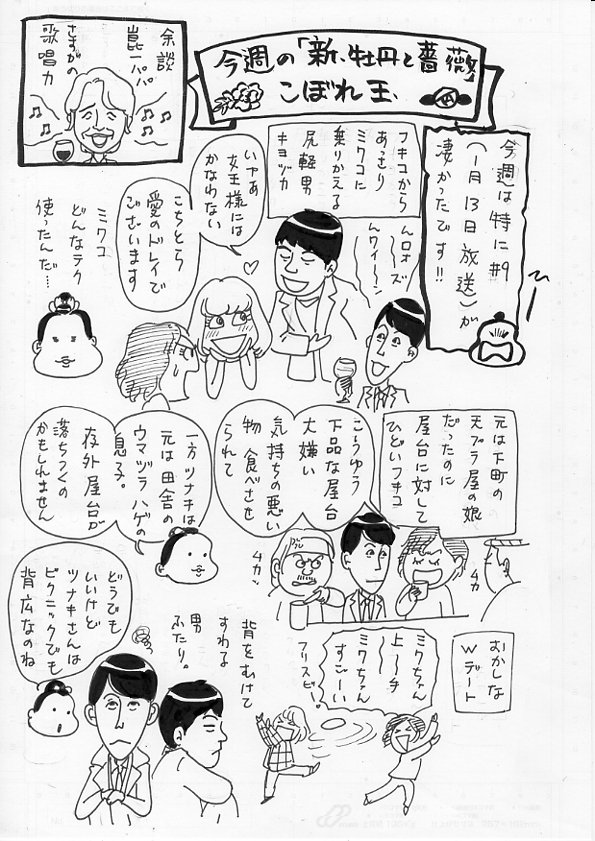 今週の「新、牡丹と薔薇」
こぼれ玉、
余談
崑一パパ
さすがの
歌唱力
今週は特に#9
(1月13日放送)が
凄かったです!!
フキコから
あっさり
ミワコに
乗りかえる
尻軽男
キヨヅカ
んロォ〜ズ
んワイ〜ン
いやあ
女王様には
かなわない
こちとら
愛のドレイで
ございます
ミワコ
どんなテク
使ったんだ…
元は下町の
天プラ屋の娘
だったのに
屋台に対して
ひどいフキコ
こうゆう
下品な屋台
大嫌い
気持ちの悪い
物食べさせ
られて
ムカ
ムカッ
一方ツナキは
元は田舎の
ウマヅラハゲの
息子。
存外屋台が
落ちつくの
かもしれません
おかしな
Wデート
ミワちゃん
上〜〜手
ミワちゃん
すご〜い
フリスビー。
背をむけて
すわる
男
ふたり。
どうでも
いいけど
ツナキさんは
ピクニックでも
背広なのね